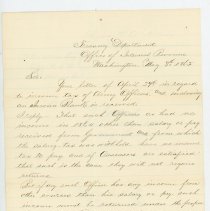 Treasury Department
Office of Internal Revenue
Washington May 8th 1863
Sir:
Your letter of April 29th in regard
to income tax of Army Officers, and enclosing
an Income Return is received.
I reply. That such Officers as had no
income in 1862 other than salary or pay
received from Government and from which
the salary tax was withheld have no income
tax to pay and if Assessors are satisfied
that such is the case they will not require
returns.
But if any such Officer has any income from
other sources than his salary or pay such
income must be returned under the proper